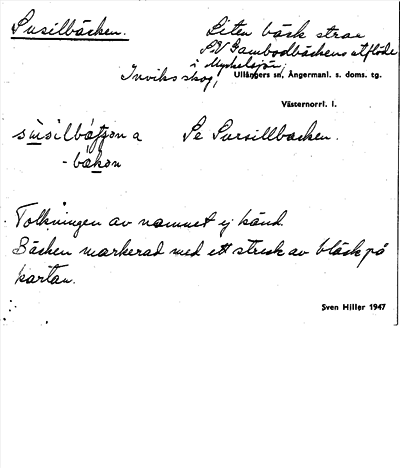 Susilbäcken.
Liten bäck strax
SV Gambodbäckens utflöde
i Myckelsjön
Inviks skog, Ullångers sn, Ångermanl. s. doms. tg.
Västernorrl. l.
Se Sursillbacken.
-bäkən
Tolkningen av namnet ej känd.
Bäcken markerad med ett streck av bläck på
kartan.
Sven Hiller 1947